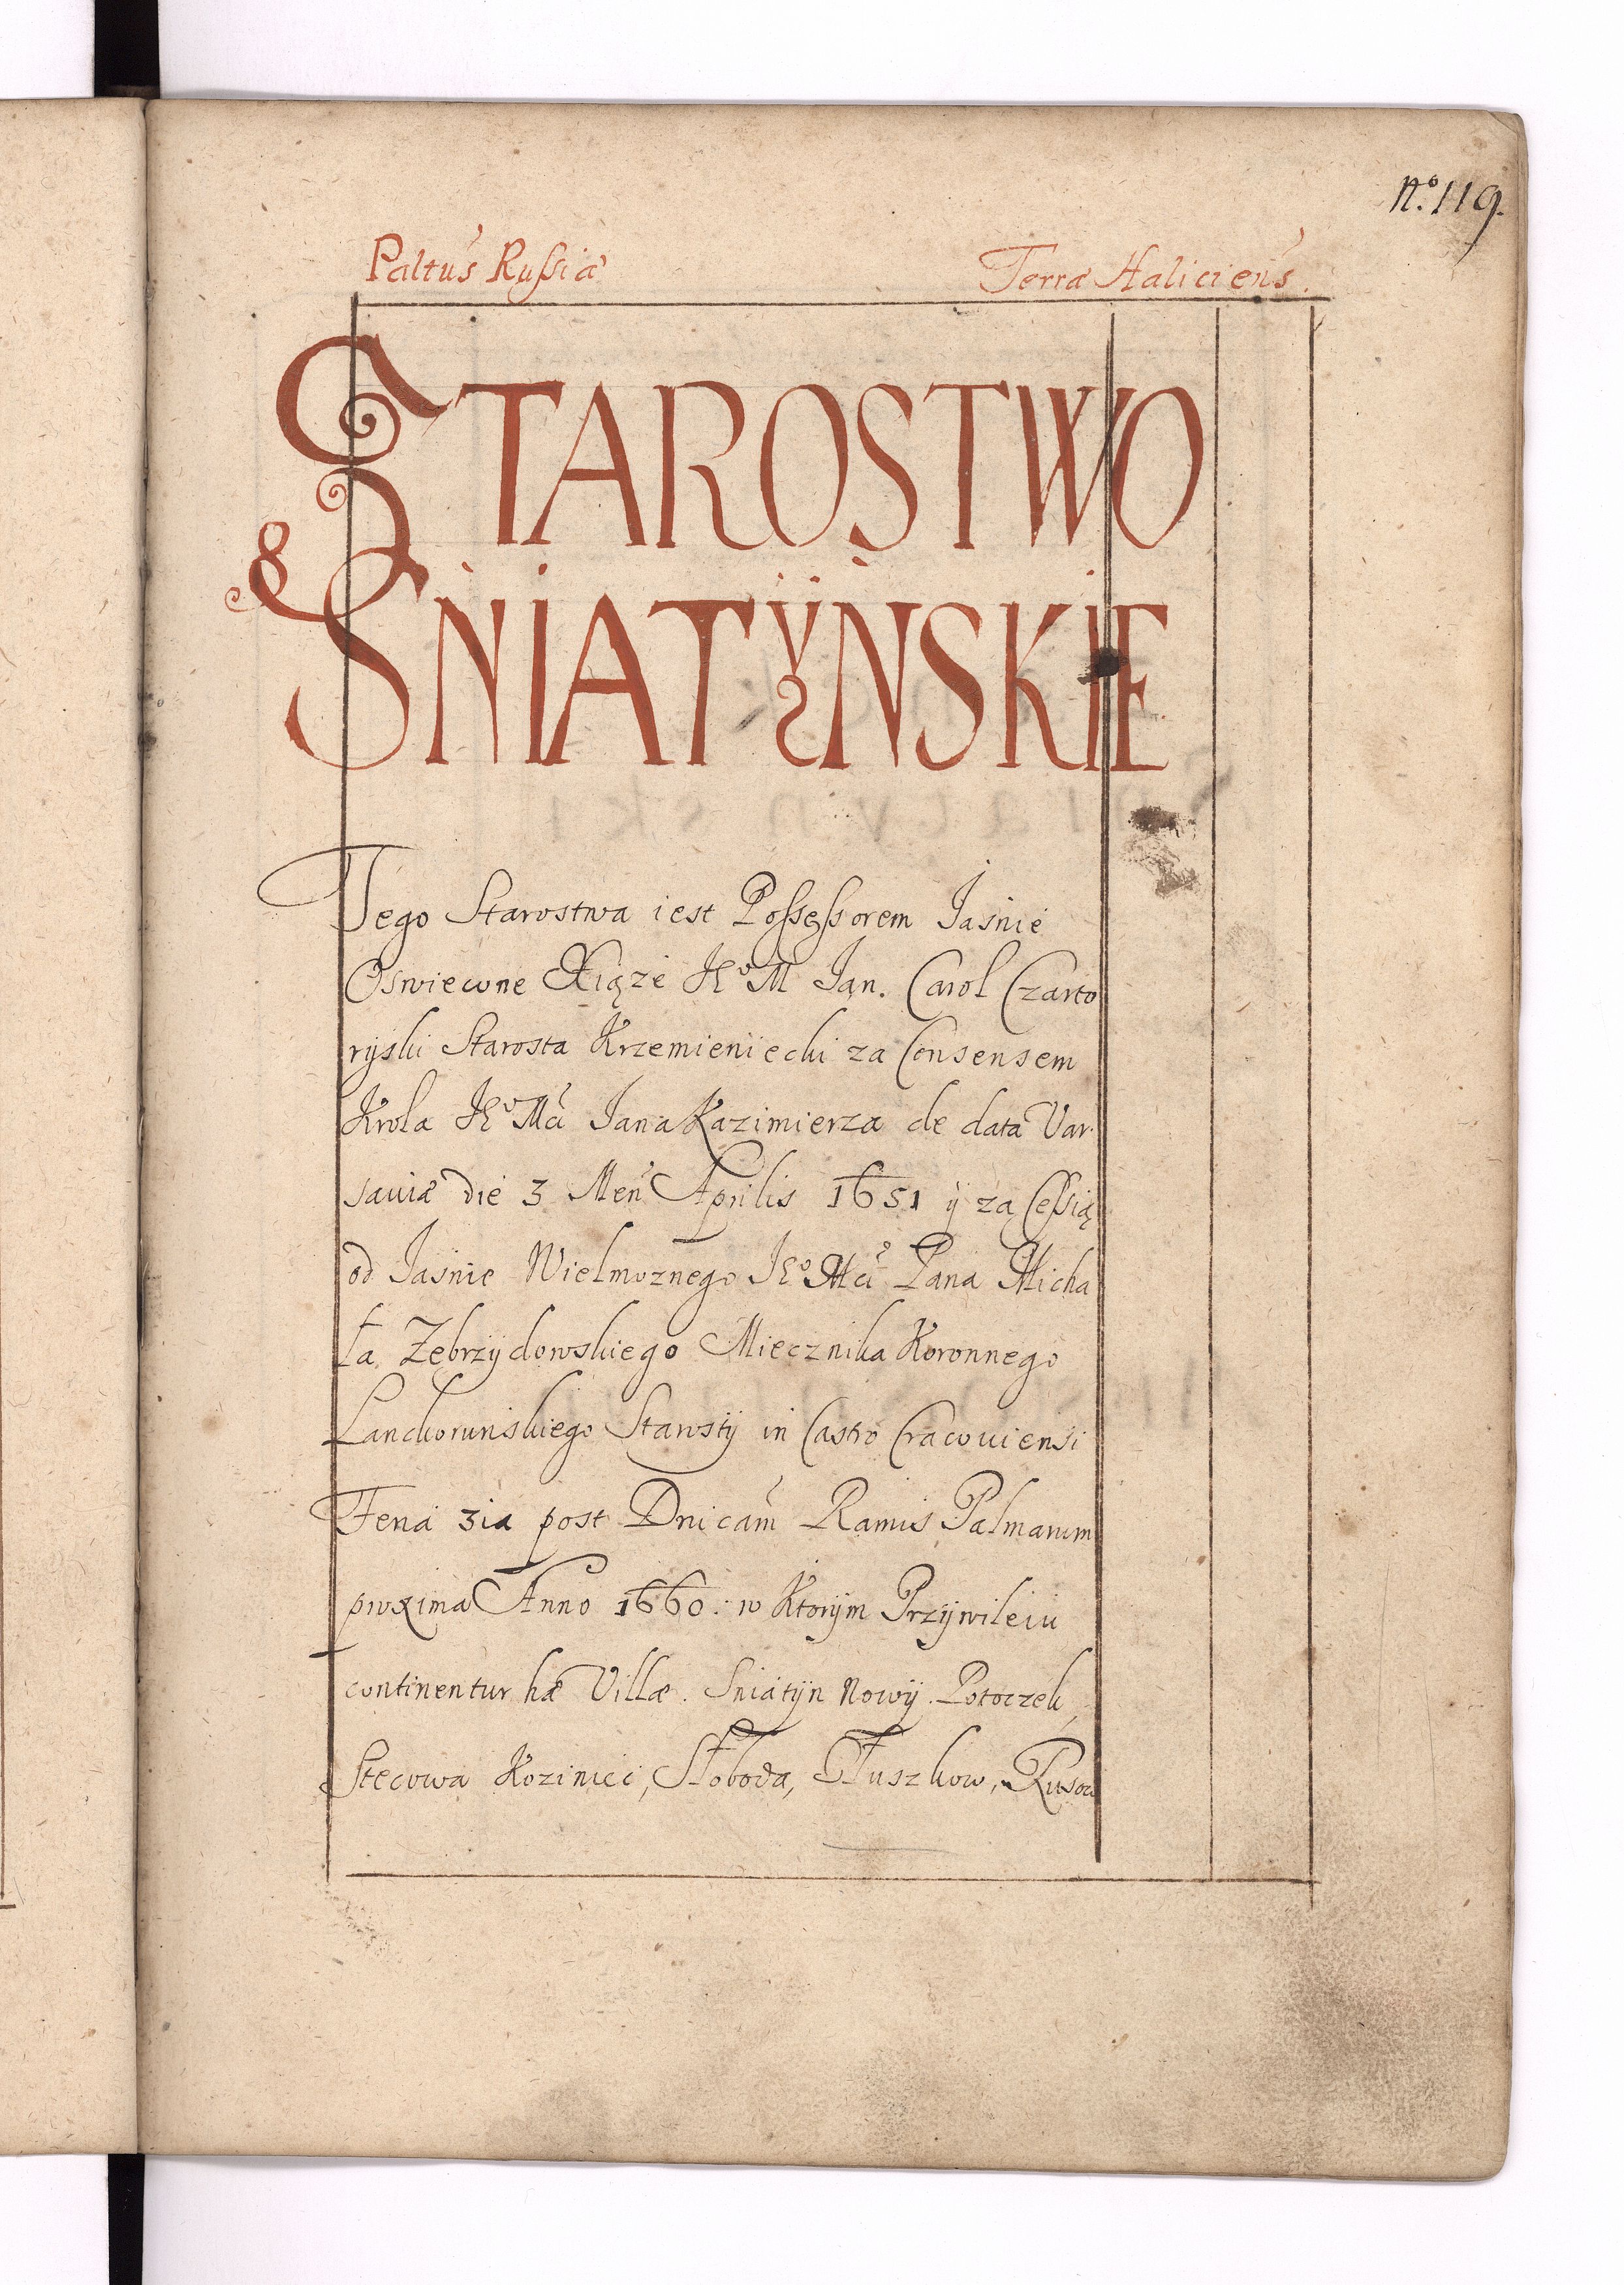 N.º 119.
Paltus Russiæ Terræ Haliciens.
STAROSTWO
SNIATYŃSKIE
Tego Starostwa iest Possessorem Jasnie
Oswiecone Xiąze JE° M Jan. Carol Czarto
ryski Starosta Krzemieniecki za Consensem
Krola JE° Mći Jana Kazimierza de data Var
saviæ die 3 Men Aprilis 1651 ÿ za Cessią
od Jasnie Wielmoznego JE° Mći Pana Micha
ła Zebrzydowskiego Miecznika Koronnego
Lanckorunskiego Starosty in Castro Cracoviensi
Feria 3ia post Dnicam Ramis Palmarum
proxima Anno 1660. w Ktorym Przywileiu
continentur hæ Villæ. Sniatyn Nowy. Potoczek,
Stecowa Kozinici, Słoboda, Tłuszkow, Rusow